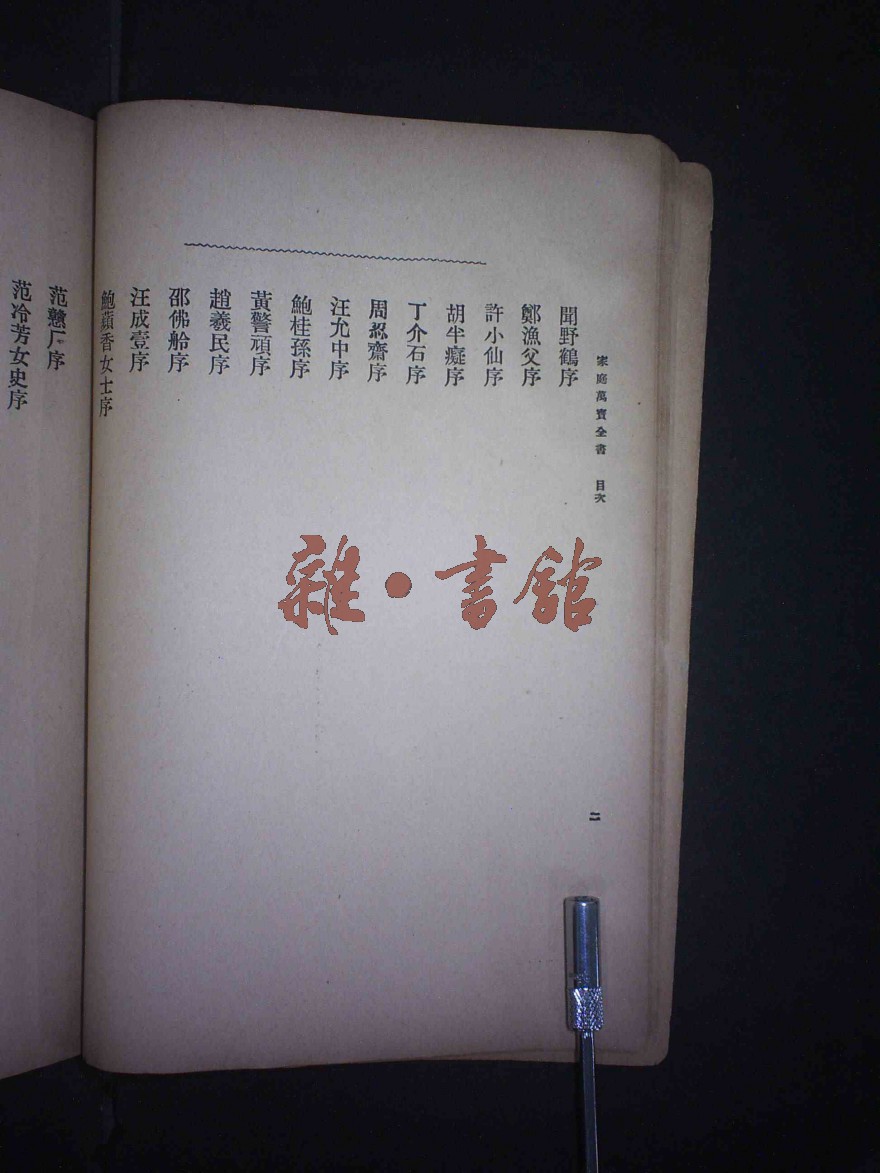 家庭萬寶全書 目次
二
聞野鶴序
鄭漁父序
許小仙序
胡半癡序
丁介石序
周忍齋序
汪允中序
鮑桂孫序
黃警頑序
趙羲民序
邵佛船序
汪成壹序
鮑蘋香女士序
范戇厂序
范冷芳女史序
雜·書館